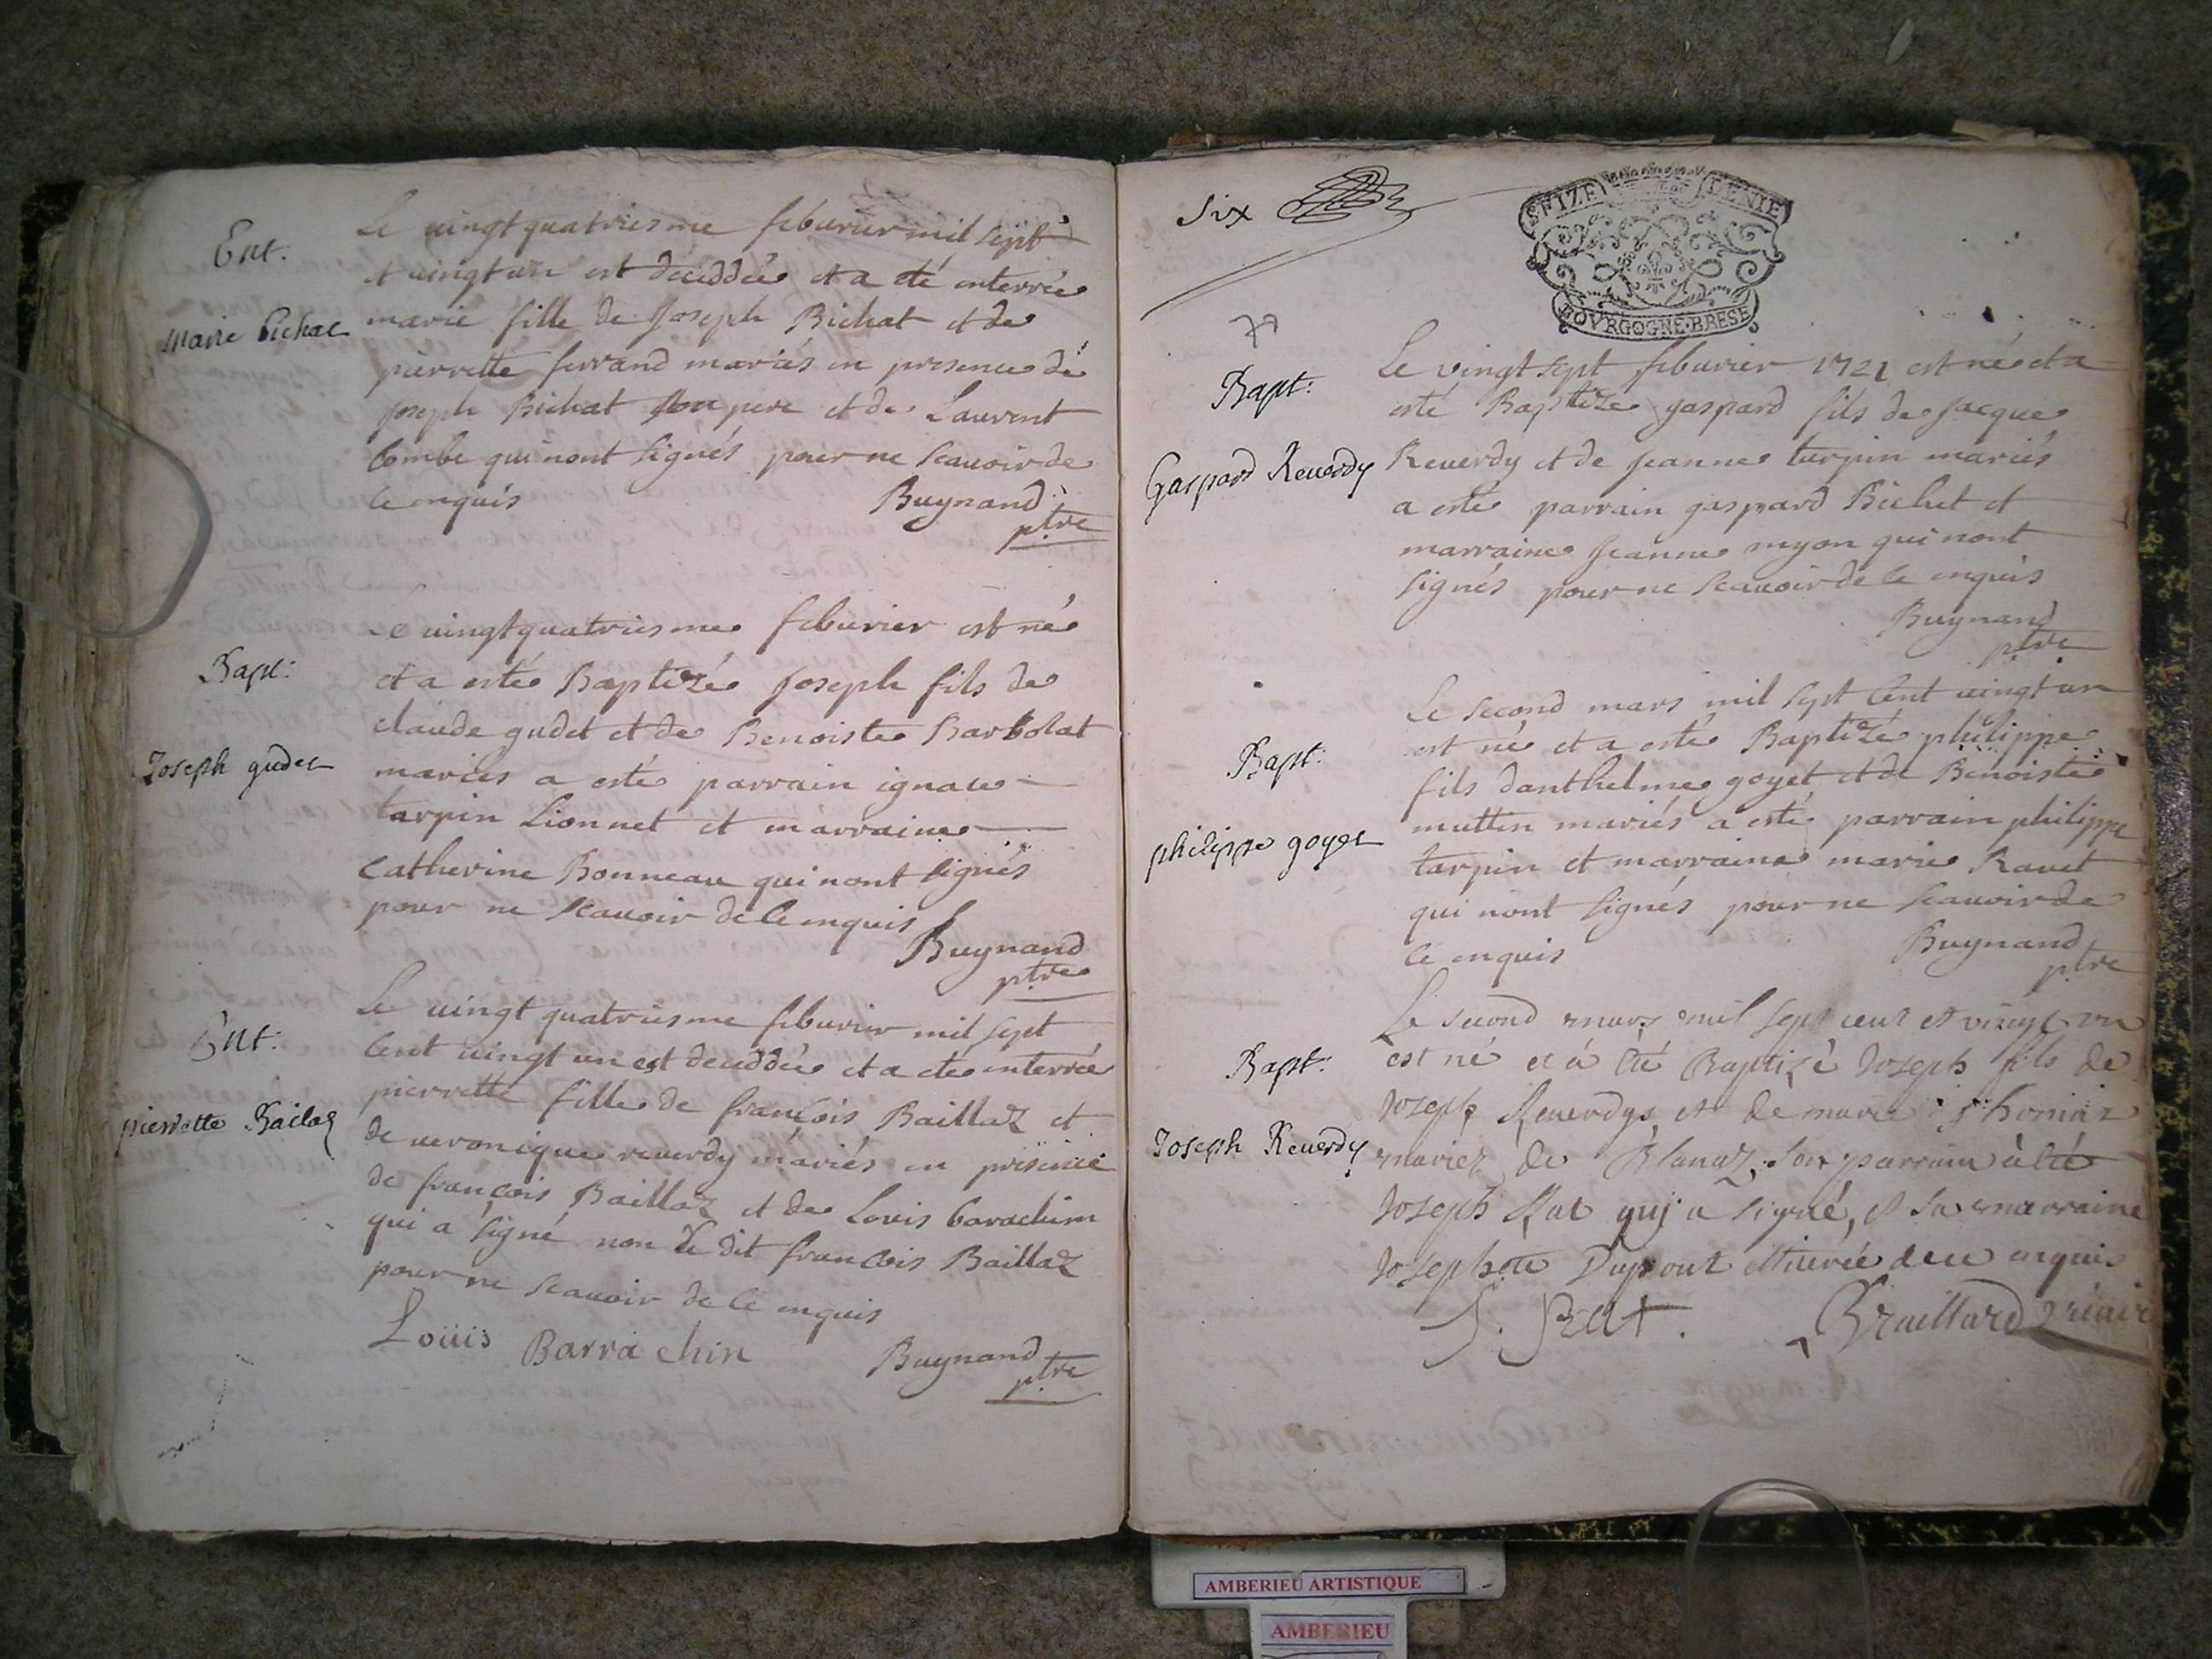 Ent.
Marie Bichat
Le uingtquatriesme feburier mil sept
et uingt un est deceddée et a eté enterrée
marie fille de Joseph Bichat et de
pierrette ferrand mariés en presence de
Joseph Bichat son pere et de Laurent
Combe qui nont signés pour ne scauoir de
ce enquis
Buynand
ptre
Bapt:
Joseph gudet
Le uingtquatriesme feburier est né
et a esté Baptizé Joseph fils de
claude gudet et de Benoiste Barbolat
mariés a esté parrain ignace
tarpin Lionnet et marraine
Catherine Bonneau qui nont signés
pour ne scauoir de ce enquis
Buynand
ptre
Ent:
pierrette Bailaz
Le uingt quatriesme feburier mil sept
Cent uingt un est deceddée et a eté enterrée
pierrette fille de françois Baillaz et
de ueronique reuerdy mariés en presence
de françois Baillaz et de Louis barachim
qui a signé non le dit françois Baillaz
pour ne scauoir de ce enquis
Loüis Barrachin
Buynand
ptre
Six
SEIZE DENIE
BOVRGOGNE·BRESE
Bapt:
Gaspard Reuerdy
Le vingt sept feburier 1721 est né et a
esté Baptizé gaspard fils de Jacque
Reuerdy et de Jeanne turpin mariés
a esté parrain gaspard Bichet et
marraine Jeanne myon qui nont
signés pour ne scauoir de ce enquis
Buynand
ptre
Bapt:
philippe goyet
Le second mars mil sept Cent uingt un
est né et a esté Baptizé philippe
fils danthelme goyet et de Benoiste
muttin mariés a esté parrain philippe
tarpin et marraine marie Rauet
qui nont signés pour ne scauoir de
ce enquis
Buynand
ptre
Bapt:
Joseph Reuerdy
Le second mars mil sept cent et vingt vn
est né et à êté Baptizé Joseph fils de
Joseph Reuerdy, et de marie
mariez de Blanaz, son parrain à êté
Joseph Rat quj a signé, et sa marraine
Josephte Dupont illiterée de ce enquis
J. Rat.
Braillard vicaire
AMBERIEU ARTISTIQUE
AMBERIEU